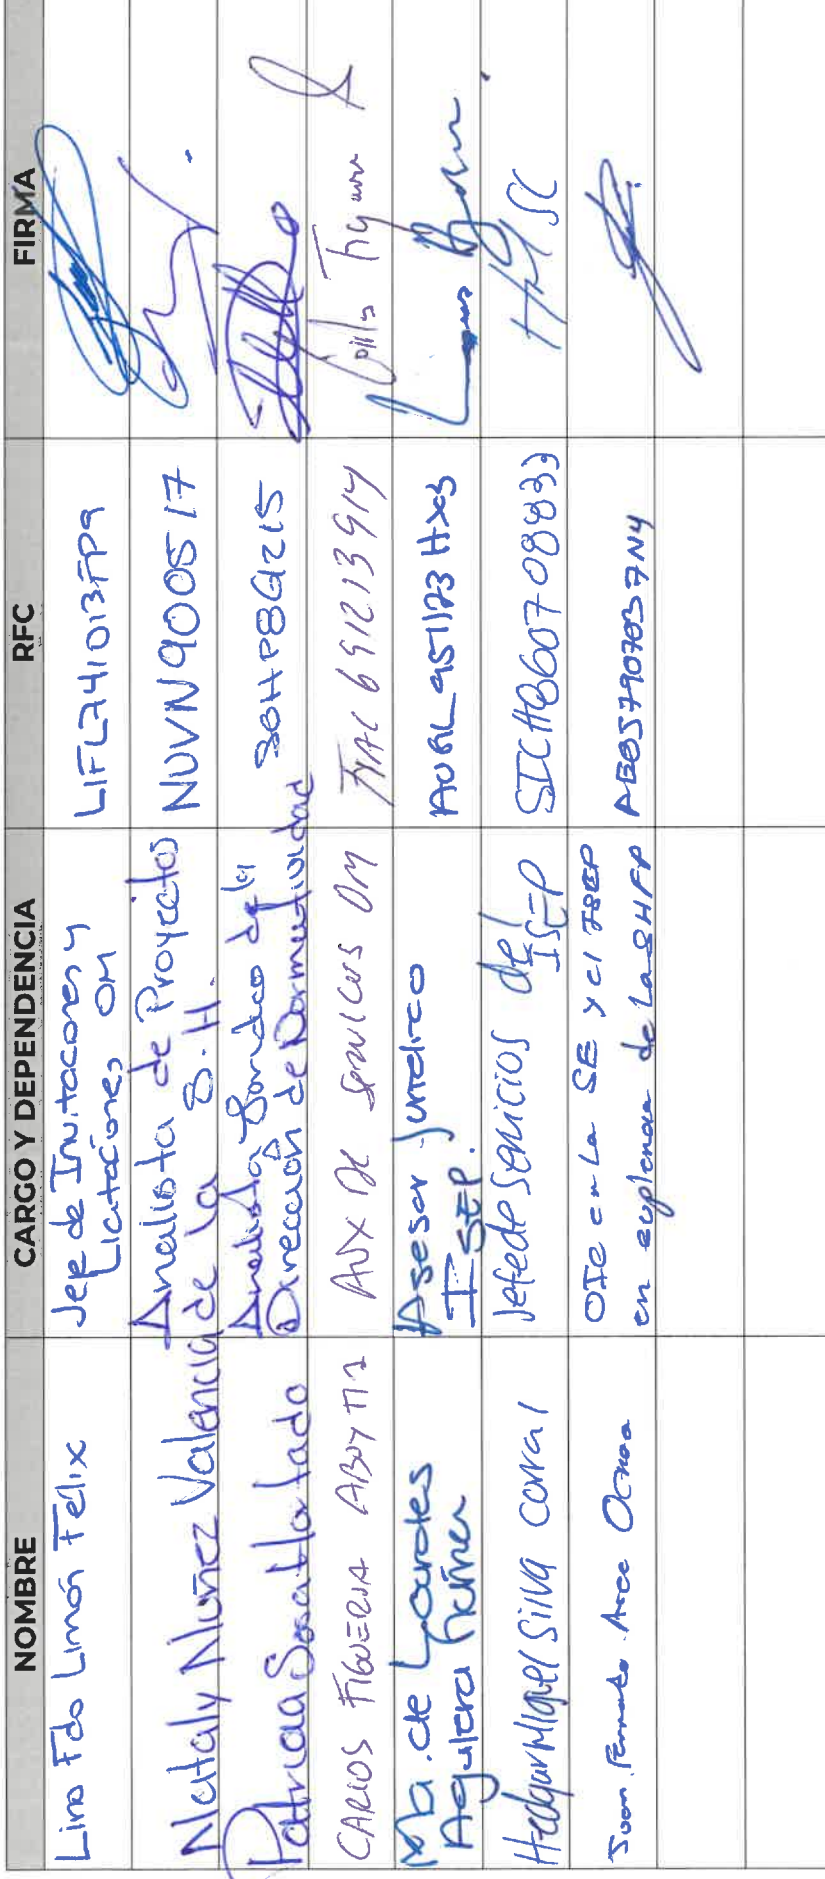 NOMBRE CARGO Y DEPENDENCIA RFC FIRMA
Lino Fdo Limón Félix
Jefe de Invitaciones y
Licitaciones OM
LIFL741013FP9
Nataly Núñez Valencia
Analista de Proyectos
de la S.H.
NUVN900517
Patricia Sosa Hurtado
Analista Jurídico de la
Dirección de Normatividad
SOHP8G1215
CARLOS FIGUEROA ABOYTIA
AUX DE SERVICIOS OM
FIAC691213914
Ma. de Lourdes
Aguilera
Asesor Jurídico
ISEP.
AUGL951123HX3
Hedgar Miguel Silva Corral
Jefe de Servicios del
ISEP
SICH860708
HMSC
Juan Fernando Arce Ochoa
OIC en la SE y el ISEP
en suplencia de la SHFP
AEOJ7907037N4